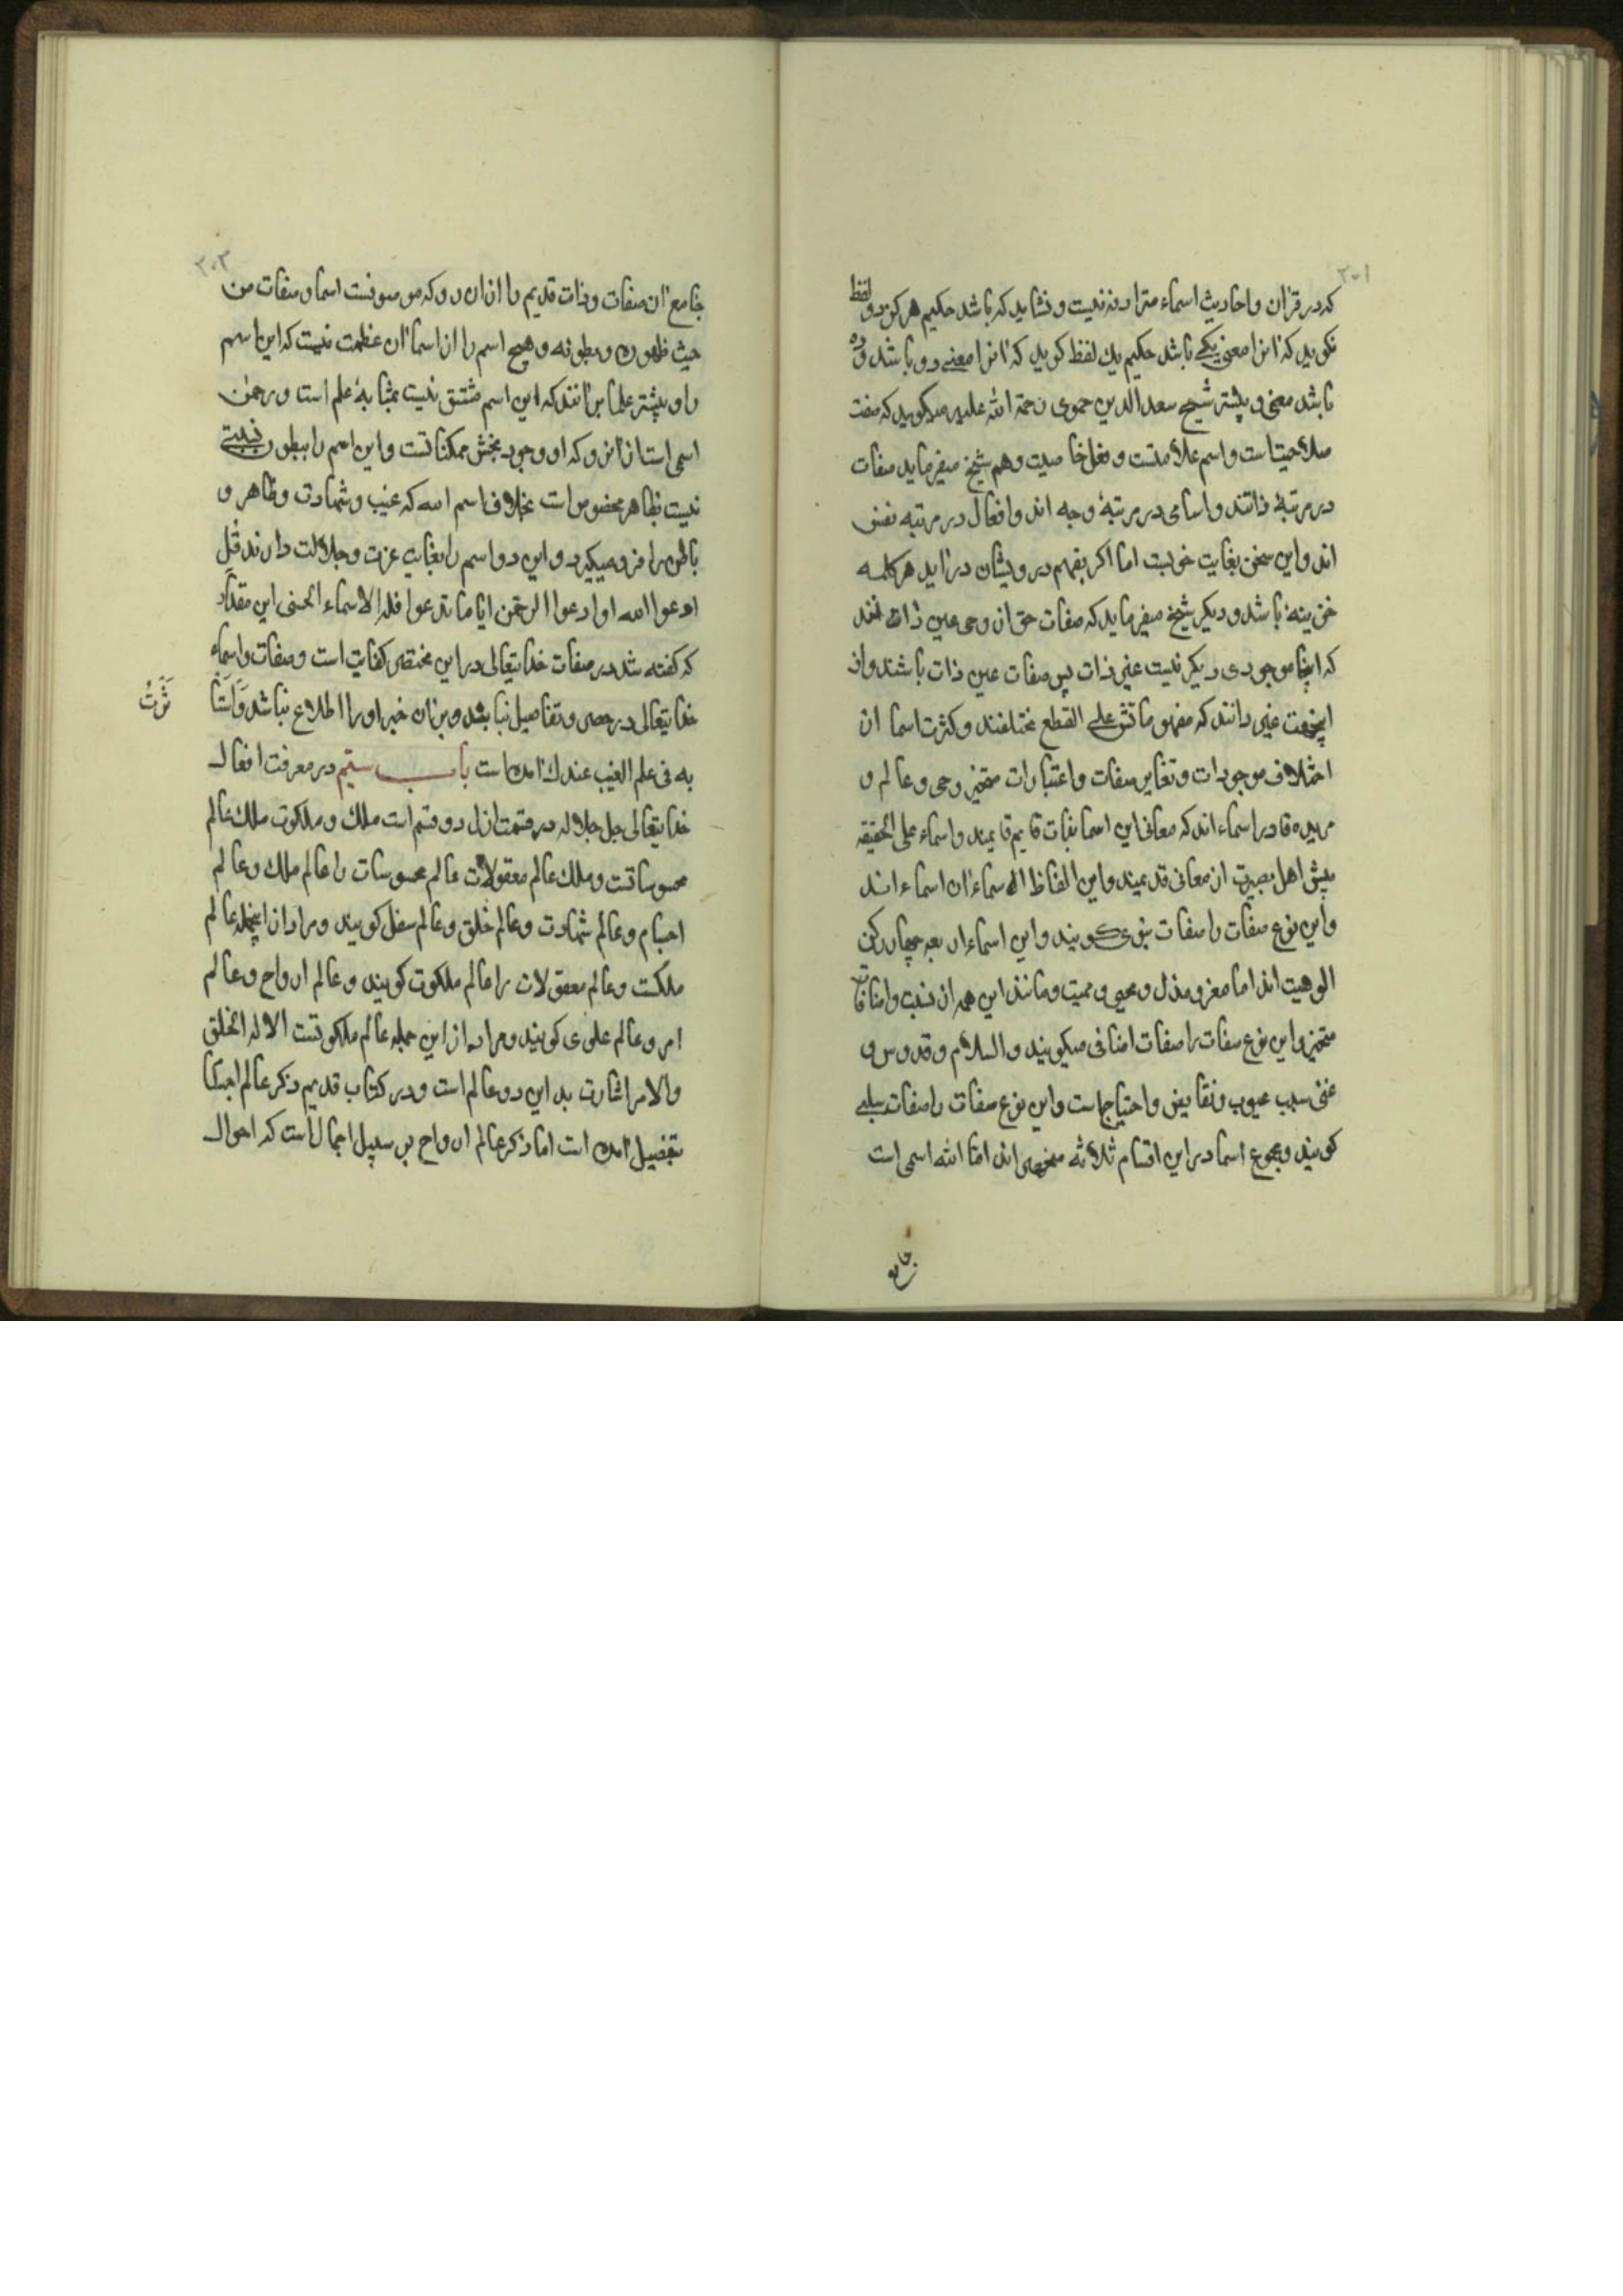 ۳۰۱
که در قرآن و احادیث اسماء مترادفه نیست و نشاید که باشد حکیم هرکز دو لفظ
نکوید که آنرا معنی یکی باشد حکیم یك لفظ کوید که آنرا معنی دو باشد و ده
باشد معنی و بیشتر شیخ سعد الدین حموی رحمة الله علیه میکوید که صفت
صلاحیتاست و اسم علامتست و فعل خاصیت و هم شیخ میفرماید صفات
در مرتبۀ ذاتند و اسامی در مرتبۀ وجه اند و افعال در مرتبه نفس
اند و این سخن بغایت خوبست اما اکر بفهم درویشان در آید هر کلمه
خزینه باشد و دیکر شیخ میفرماید که صفات حق از وجهی عین ذات اند
که اینجا موجودی دیکر نیست غیر ذات پس صفات عین ذات باشند و از
اینجهت غیر دانند که مفهوماتش علی القطع مختلفند و کثرت اسما از
اختلاف موجودات و تغایر صفات و اعتبارات متحیز و حی و عالم و
مرید و قادر اسماء اند که معانی این اسما بذات قایم قایمند و اسماء علی الحقیقه
پیش اهل بصیرت ان معانی قدیمیند و این الفاظ الاسماء ان اسماء اند
و این نوع صفات را صفات ثبوتی کویند و این اسماء اربعه چهار رکن
الوهیت اند اما معز و مذل و محیی و ممیت و مانند این همه از نسبت و اضافات
متحیز و این نوع صفات را صفات اضافی میکویند و السلام و قدوس و
غنی سلب عیوب و نقایص و احتیاجاست و این نوع صفات را صفات سلبی
کویند و مجموع اسما در این اقسام ثلاثه منحصر اند اما الله اسمی است
جامع
۳۰۲
جامع آن صفات و ذات قدیم را از ان رو که موصوفست اسما و صفات من
حیث ظهوره و بطونه و هیچ اسم را از اسما آن عظمت نیست که این اسم
را و بیشتر علما برآنند که این اسم مشتق نیست بمثابۀ علم است و رحمن
اسمی است از انرو که او وجود بخش ممکناتست و این اسم را ببطون نسبتی
نیست بظاهر مخصوص است بخلاف اسم الله که غیب و شهادت و ظاهر و
باطن را فرو میکیرد و این دو اسم را بغایت عزت و جلالت دارند قل
ادعوا الله او ادعوا الرحمن ایا ما تدعوا فله الاسماء الحسنی این مقدار
که کفته شد در صفات خدایتعالی در این مختصر کفایت است و صفات و اسماء
خدایتعالی در حصر و تفاصیل نیا بد و بر آن خبر او را اطلاع نباشد و استا
ثرت
به فی علم الغیب عندك آمده است باب سیم در معرفت افعال
خدایتعالی جل جلاله در قسمت اول دو قسم است ملك و ملکوت ملك عالم
محسوساتست و ملك عالم معقولات عالم محسوسات را عالم ملك و عالم
اجسام و عالم شهادت و عالم خلق و عالم سفل کویند و مراد از اینجمله عالم
ملکست و عالم معقولات را عالم ملکوت کویند و عالم ارواح و عالم
امر و عالم علوی کویند و مراد از این جمله عالم ملکوتست الا له الخلق
والامر اشارت بد این دو عالم است و در کتاب قدیم ذکر عالم اجسا
بتفصیل آمده است اما ذکر عالم ارواح بر سبیل اجمال است که احوال